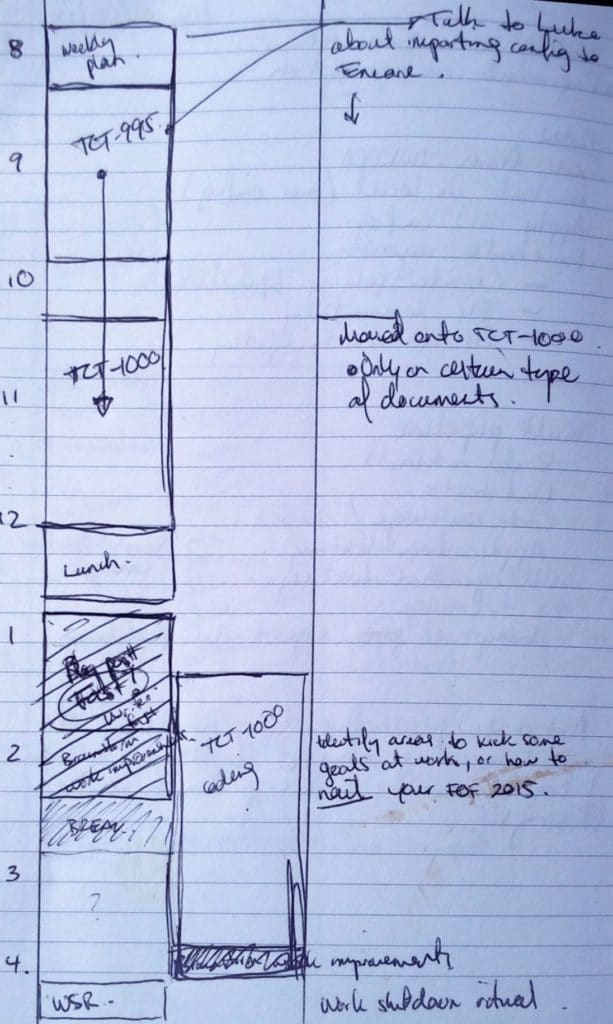 8
weekly
plan.
Talk to Luke
about importing config to
TCT-995
9
10
TCT-1000
Moved onto TCT-1000
• Only on certain type
of documents.
11
12
Lunch.
1
Blog post
Write
2
Brainstorm
work improvement
TCT-1000
coding
Identify areas to kick some
goals at work, or how to
nail your FOF 2015.
BREAK
3
?
4.
improvements
WSR.
work shutdown ritual.